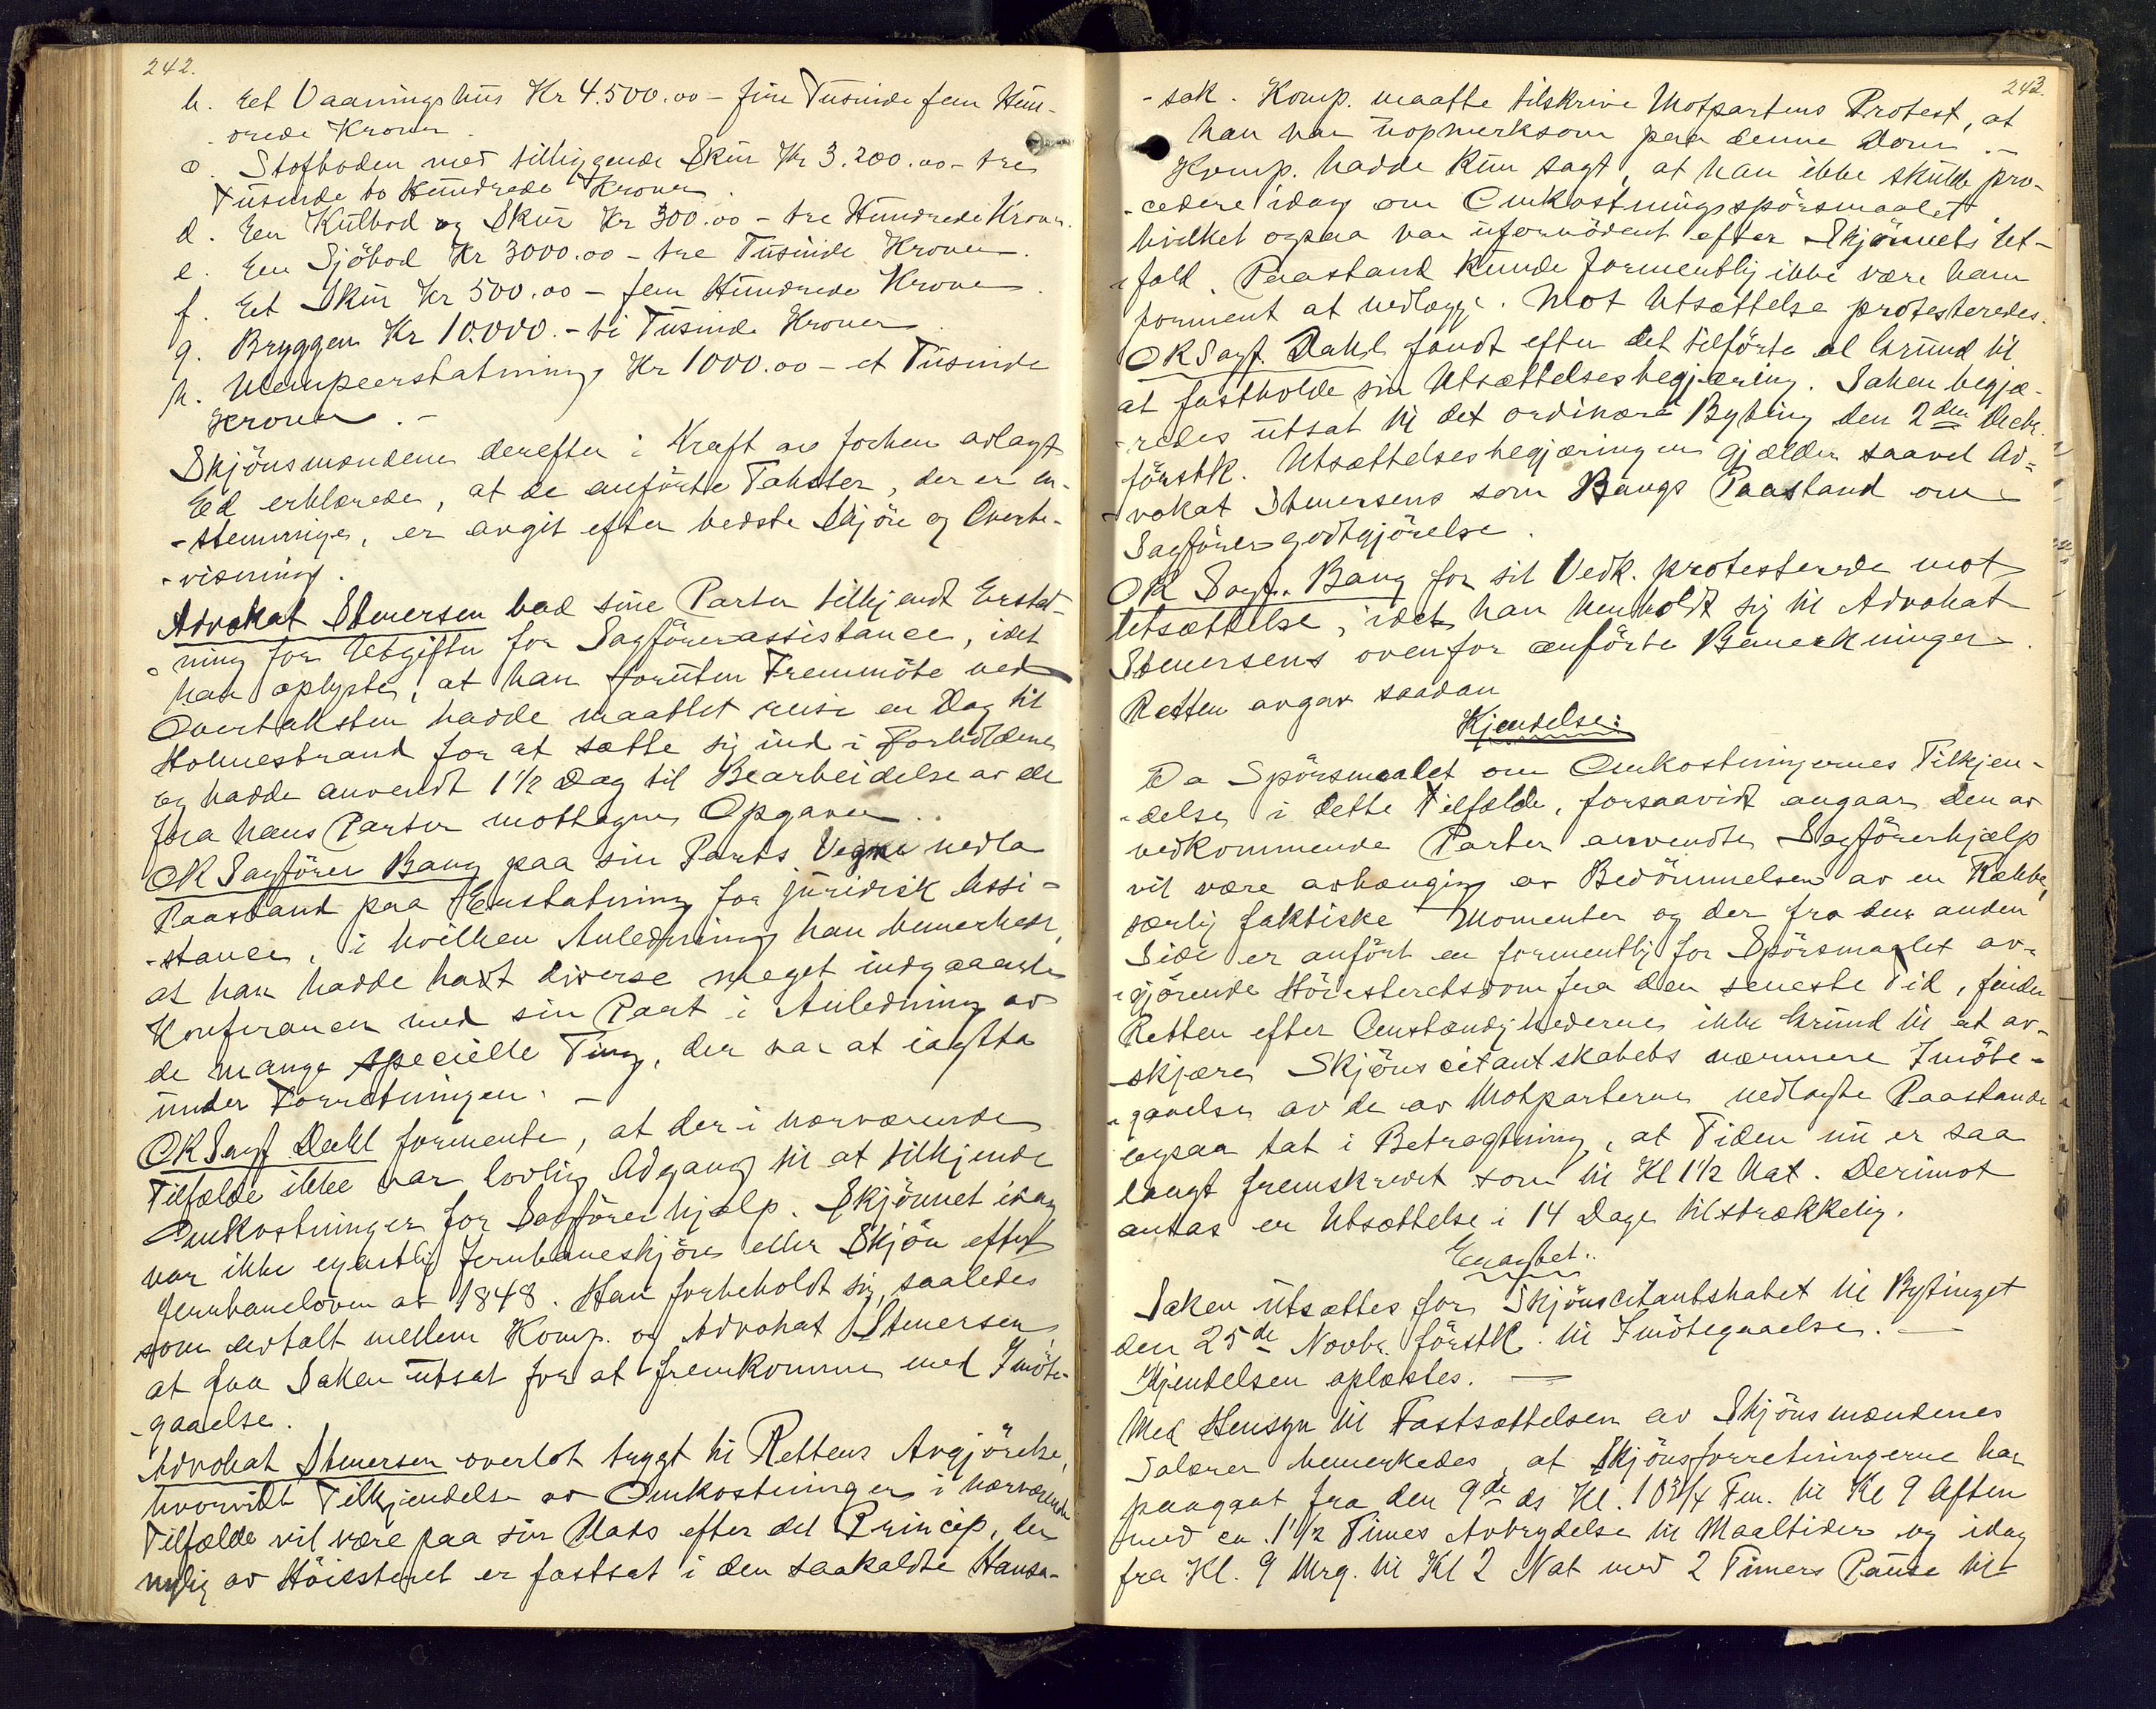 242.
b. Eet Vaaningshus Kr 4.500.00 - fire Tusinde fem Hun-
drede Kroner.
c. Stofboden med tilliggende Skur Kr 3.200.00 - tre
Tusinde to Hundrede Kroner.
d. Een Kulbod og Skur Kr 300.00 - tre Hundrede Kroner.
e. Een Sjöbod Kr 3000.00 - tre Tusinde Kroner.
f. Eet Skur Kr 500.00 - fem Hundrede Kroner.
g. Bryggen Kr 10.000. - ti Tusinde Kroner.
h. Ulempeerstatning Kr 1000.00 - et Tusinde
Kroner. -
Skjönsmændene derefter i Kraft av forhen avlagt
Ed erklærede, at de anförte Takster, der er en-
-stemmige, er avgit efter bedste Skjön og Overbe-
-visning.
Advokat Stenersen bad sine Parter tilkjendt Erstat-
-ning for Utgifter for Sagförerassistance, idet
han oplyste, at han foruten Fremmöte ved
Overtaksten hadde maattet reise en Dag til
Holmestrand for at sætte sig ind i Forholdene
og hadde anvendt 1 1/2 Dag til Bearbeidelse av de
fra hans Parter mottagne Opgaver.
OR Sagförer Bang paa sin Parts Vegne nedla
Paastand paa Erstatning for juridisk Assi-
-stance, i hvilken Anledning han bemerket,
at han hadde havt diverse meget indgaaende
Konferancer med sin Part i Anledning av
de mange specielle Ting, der var at iagtta
under Forretningen. -
OR Sagf Dahl formente, at der i nærværende
Tilfælde ikke var lovlig Adgang til at tilkjende
Omkostninger for Sagförerhjælp. Skjönnet idag
var ikke egentlig Jernbaneskjön eller Skjön efter
Jernbaneloven av 1848. Han forbeholdt sig, saaledes
som avtalt mellem Komp. og Advokat Stenersen,
at faa Saken utsat for at fremkomme med Imöte-
-gaaelse.
Advokat Stenersen overlot trygt til Rettens Avgjörelse,
hvorvidt Tilkjendelse av Omkostninger i nærværende
Tilfælde vil være paa sin Plads efter det Princip, der
nylig av Höiesteret er fastsat i den saakaldte Hansa-
243.
-sak. Komp. maatte tilskrive Motpartens Protest, at
han var uopmerksom paa denne Dom. -
Komp. hadde kun sagt, at han ikke skulde pro-
-cedere idag om Omkostningsspörsmaalet
hvilket ogsaa var ufornödent efter Skjönnets Ut-
-fald. Paastand kunde formentlig ikke være ham
forment at nedlægge. Mot Utsættelse protesteredes.
OR Sagf. Dahl fandt efter det tilförte al Grund til
at fastholde sin Utsættelsesbegjæring. Saken begjæ-
-redes utsat til det ordinære Byting den 2den Decbr.
förstk. Utsættelsesbegjæringen gjælder saavel Ad-
-vokat Stenersens som Bangs Paastand om
Sagförergodtgjörelse.
OR Sagf. Bang for sit Vedk. protesterede mot
Utsættelse, idet han henholdt sig til Advokat
Stenersens ovenfor anförte Bemerkninger.
Retten avgav saadan
Kjendelse:
Da Spörsmaalet om Omkostningernes Tilkjen-
-delse i dette Tilfælde, forsaavidt angaar den av
vedkommende Parter anvendte Sagförerhjælp
vil være avhængig av Bedömmelsen av en Række,
særlig faktiske Momenter og der fra den anden
Side er anfört en formentlig for Spörsmaalet av-
-gjörende Höiesteretsdom fra den seneste Tid, finder
Retten efter Omstændighederne ikke Grund til at av-
-skjære Skjönscitantskabets nærmere Imöte-
-gaaelse av de av Motparterne nedlagte Paastande
ogsaa tat i Betragtning, at Tiden nu er saa
langt fremskredet som til Kl 1 1/2 Nat. Derimot
antas en Utsættelse i 14 Dage tilstrækkelig.
Eragtet:
Saken utsættes for Skjönscitantskabet til Bytinget
den 25de Novbr. förstk. til Imötegaaelse. -
Kjendelsen oplæstes. -
Med Hensyn til Fastsættelsen av Skjönsmændenes
Salærer bemerkedes, at Skjönsforretningerne har
paagaat fra den 9de ds Kl. 10 3/4 Fm. til Kl 9 Aften
med en 1 1/2 Times Avbrydelse til Maaltider og idag
fra Kl. 9 Mrg. til Kl 2 Nat med 2 Timers Pause til